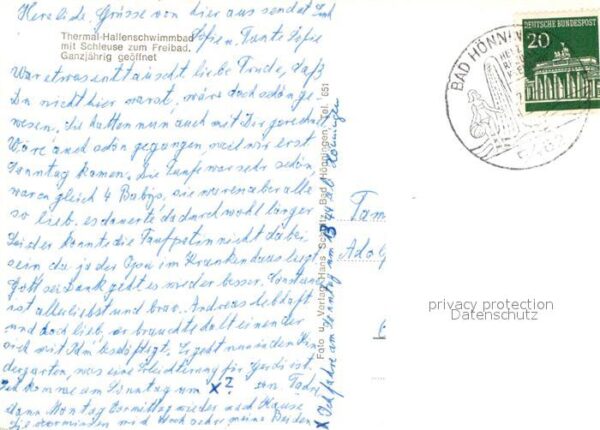 Herzliche Grüsse von hier aus sendet Euch
Sofien. Tante Sofie
Thermal-Hallenschwimmbad
mit Schleuse zum Freibad.
Ganzjährig geöffnet
War etwas enttäuscht liebe Trude, daß
Du nicht hier warst, wäre doch schön ge-
wesen. Sie hatten nun auch mit Dir gerechnet
Wäre auch schön gegangen, weil wir erst
Sonntag kamen. Die Taufe war sehr schön
waren gleich 4 Babys, sie waren aber alle
so lieb. es dauerte dadurch wohl länger
Leider konnte die Taufpatin nicht dabei
sein da ja der Opa im Krankenhaus liegt
Gott sei Dank geht es wieder besser. Constanze
ist allerliebst und brav. Andreas lebhaft
und doch lieb, er braucht halt einen der
sich mit ihm beschäftigt. Er geht nun in den Kin
dergarten, was eine Erleichterung für Gerdi ist.
Ich komme am Sonntag um X?
dann Montag Vormittag wieder nach Hause
Die vermissten wird doch sehr meine Beiden
X Ich fahre am Sonntag 13 44 ab Hönningen
Foto u. Verlag Hans Schultz, Bad Hönningen, Tel. 651
Fam
Adolf
BAD HÖNNIN
DEUTSCHE BUNDESPOST
20
privacy protection
Datenschutz